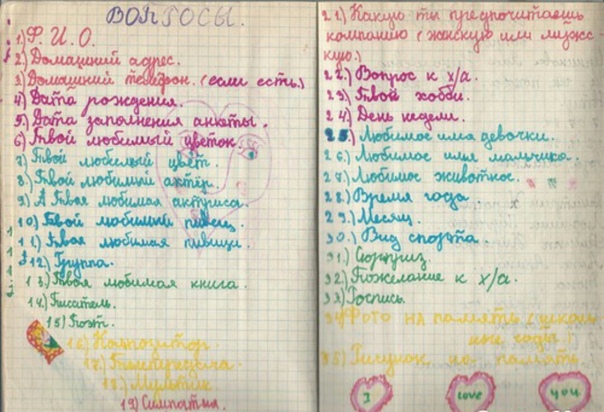 ВОПРОСЫ.
1) Ф. И. О.
2) Домашний адрес.
3) Домашний телефон. (если есть.)
4) Дата рождения.
5) Дата заполнения анкеты.
6) Твой любимый цветок.
7) Твой любимый цвет.
8) Твой любимый актёр.
9) А твоя любимая актриса.
10) Твой любимый певец.
11) Твоя любимая певица.
12) Группа.
13) Твоя любимая книга.
14) Писатель.
15) Поэт.
16) Композитор.
17) Телепередача.
18) Мультик
19) Симпатия.
21) Какую ты предпочитаешь
компанию (женскую или мужс-
кую.)
22) Вопрос к х/а.
23) Твой хобби.
24) День недели.
25) Любимое имя девочки.
26) Любимое имя мальчика.
27) Любимое животное.
28) Время года
29) Месяц.
30) Вид спорта.
31) Сюрприз
32) Пожелание к х/а.
33) Роспись.
34) Фото на память (школь
ные годы)
35) Рисунок на память.
I love you